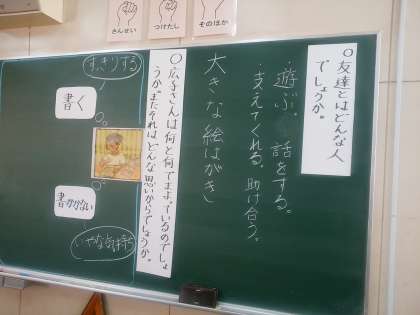 さんせい
つけたし
そのほか
〇友達とはどんな人
でしょうか。
・遊ぶ。話をする。
・支えてくれる。助け合う。
大きな絵はがき
〇広子さんは何と何でまよっているのでしょ
うか。またそれはどんな思いからでしょうか。
すっきりする
書く
書かない
いやな気持ち